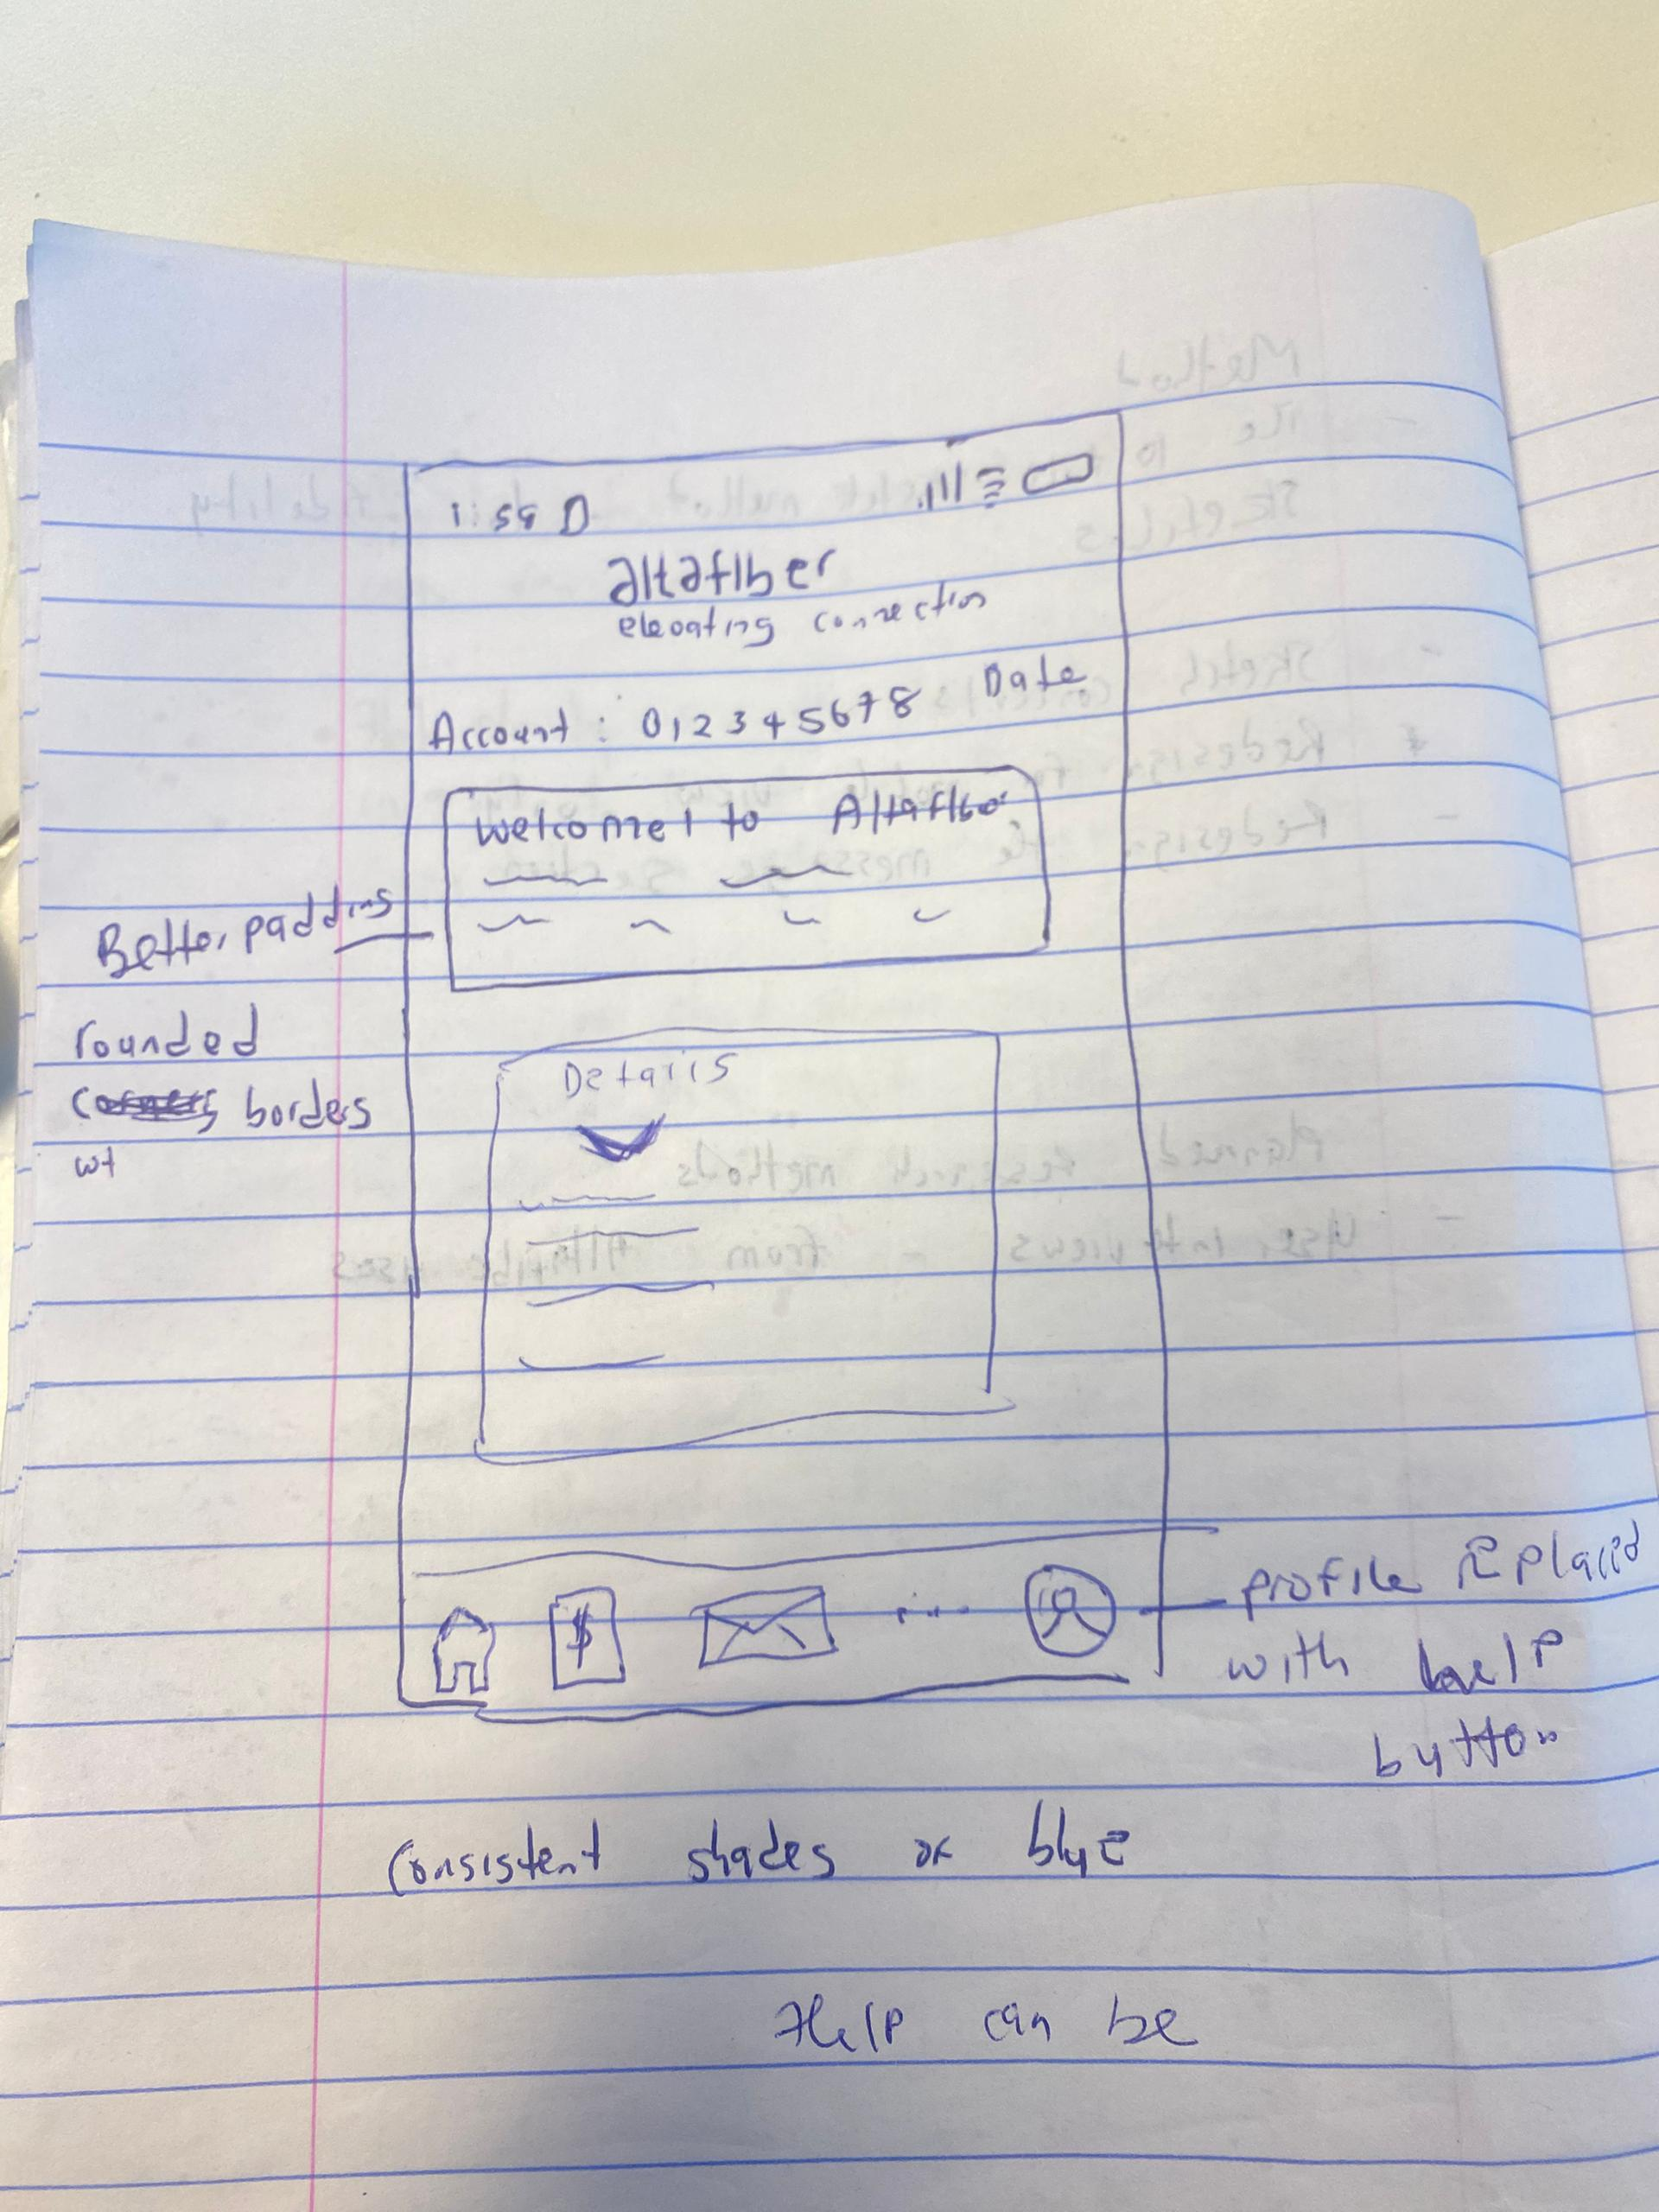 1:59
altafiber
elevating connection
Account : 012345678 Date
Welcome to Altafiber
Better padding
rounded
borders
wt
Details
$
profile replaced
with help
button
Consistent shades of blue
Help can be